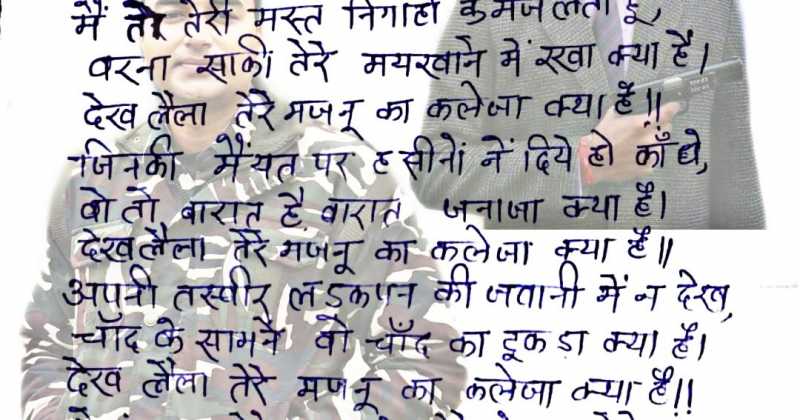 मैं तेरी मस्त निगाहों के मजे लेता हूँ,
वरना साकी तेरे मयखाने में रखा क्या है।
देख लैला तेरे मजनू का कलेजा क्या है।।
जिनकी मैंयत पर हसीनों नें दिये हो काँधे,
वो तो बारात है बारात जनाजा क्या है।
देख लैला तेरे मजनू का कलेजा क्या है॥
अपनी तस्वीर लडकपन की जवानी में न देख,
चाँद के सामने वो चाँद का टूकडा क्या है।
देख लैला तेरे मजनू का कलेजा क्या है।।